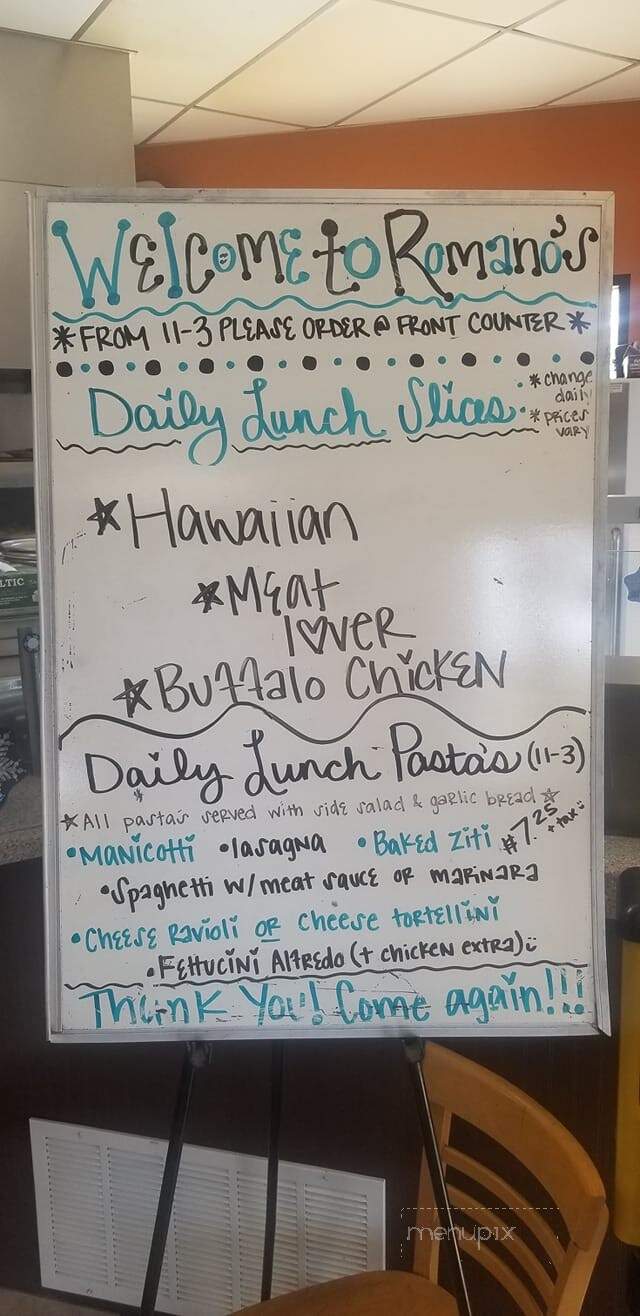 Welcome to Romano's
*FROM 11-3 PLEASE ORDER @ FRONT COUNTER*
Daily Lunch Slices
*change
daily
*prices
vary
*Hawaiian
*Meat
lover
*Buffalo Chicken
Daily Lunch Pasta's (11-3)
*All pasta's served with side salad & garlic bread*
•Manicotti •lasagna •Baked Ziti $7.25
+ tax
•Spaghetti w/meat sauce or marinara
•Cheese Ravioli or cheese tortellini
•Fettucini Alfredo (+ chicken extra)
Thank You! Come again!!!
LTIC
menupix